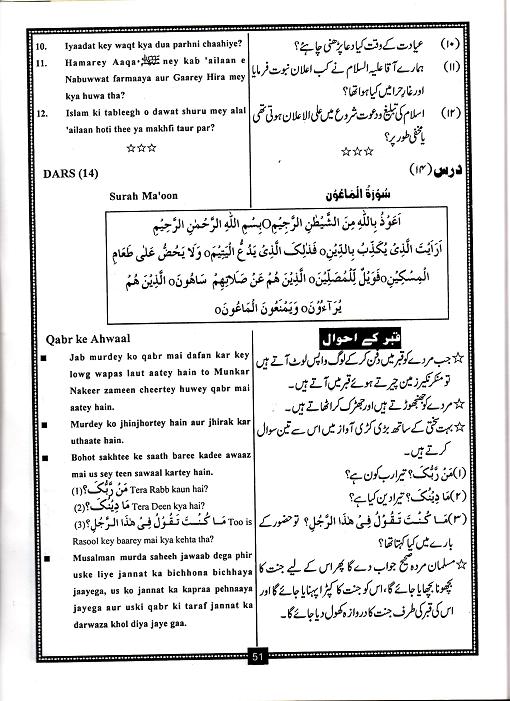 10. Iyaadat key waqt kya dua parhni chaahiye?
11. Hamarey Aaqa ﷺ ney kab 'ailaan e
Nabuwwat farmaaya aur Gaarey Hira mey
kya huwa tha?
12. Islam ki tableegh o dawat shuru mey alal
'ailaan hoti thee ya makhfi taur par?
☆☆☆
(۱۰) عیادت کے وقت کیا دعا پڑھنی چاہئے؟
(۱۱) ہمارے آقا علیہ السلام نے کب اعلان نبوت فرمایا
اور غارِ حرا میں کیا ہوا تھا؟
(۱۲) اسلام کی تبلیغ و دعوت شروع میں علی الاعلان ہوتی تھی
یا مخفی طور پر؟
☆☆☆
DARS (14)
درس (۱۴)
Surah Ma'oon
سُوْرَةُ الْمَاعُوْن
اَعُوْذُ بِاللهِ مِنَ الشَّيْطٰنِ الرَّجِيْمِ○بِسْمِ اللهِ الرَّحْمٰنِ الرَّحِيْمِ
اَرَاَيْتَ الَّذِىْ يُكَذِّبُ بِالدِّيْنِ○ فَذٰلِكَ الَّذِىْ يَدُعُّ الْيَتِيْمَ○ وَلَا يَحُضُّ عَلٰى طَعَامِ
الْمِسْكِيْنِ○فَوَيْلٌ لِّلْمُصَلِّيْنَ○ الَّذِيْنَ هُمْ عَنْ صَلَاتِهِمْ سَاهُوْنَ○ الَّذِيْنَ هُمْ
يُرَآءُوْنَ○ وَيَمْنَعُوْنَ الْمَاعُوْنَ○
Qabr ke Ahwaal
■ Jab murdey ko qabr mai dafan kar key
lowg wapas laut aatey hain to Munkar
Nakeer zameen cheertey huwey qabr mai
aatey hain.
■ Murdey ko jhinjhortey hain aur jhirak kar
uthaate hain.
■ Bohot sakhtee ke saath baree kadee awaaz
mai us sey teen sawaal kartey hain.
(1) مَنْ رَّبُّكَ؟ Tera Rabb kaun hai?
(2) مَا دِيْنُكَ؟ Tera Deen kya hai?
(3) مَا كُنْتَ تَقُوْلُ فِىْ هٰذَا الرَّجُلِ؟ Too is
Rasool key baarey mai kya kehta tha?
■ Musalman murda saheeh jawaab dega phir
uske liye jannat ka bichhona bichhaya
jaayega, us ko jannat ka kapraa pehnaaya
jayega aur uski qabr ki taraf jannat ka
darwaza khol diya jaye gaa.
قبر کے احوال
☆ جب مردے کو قبر میں دفن کرکے لوگ واپس لوٹ آتے ہیں
تو منکر نکیر زمین چیرتے ہوئے قبر میں آتے ہیں۔
☆ مردے کو جھنجھوڑتے ہیں اور جھڑک کر اٹھاتے ہیں۔
☆ بہت سختی کے ساتھ بڑی کڑی آواز میں اس سے تین سوال
کرتے ہیں۔
(۱) مَنْ رَّبُّكَ؟ تیرا رب کون ہے؟
(۲) مَا دِيْنُكَ؟ تیرا دین کیا ہے؟
(۳) مَا كُنْتَ تَقُوْلُ فِىْ هٰذَا الرَّجُلِ؟ تو حضور کے
بارے میں کیا کہتا تھا؟
☆ مسلمان مردہ صحیح جواب دے گا پھر اس کے لیے جنت کا
بچھونا بچھایا جائے گا، اس کو جنت کا کپڑا پہنایا جائے گا اور
اس کی قبر کی طرف جنت کا دروازہ کھول دیا جائے گا۔
51